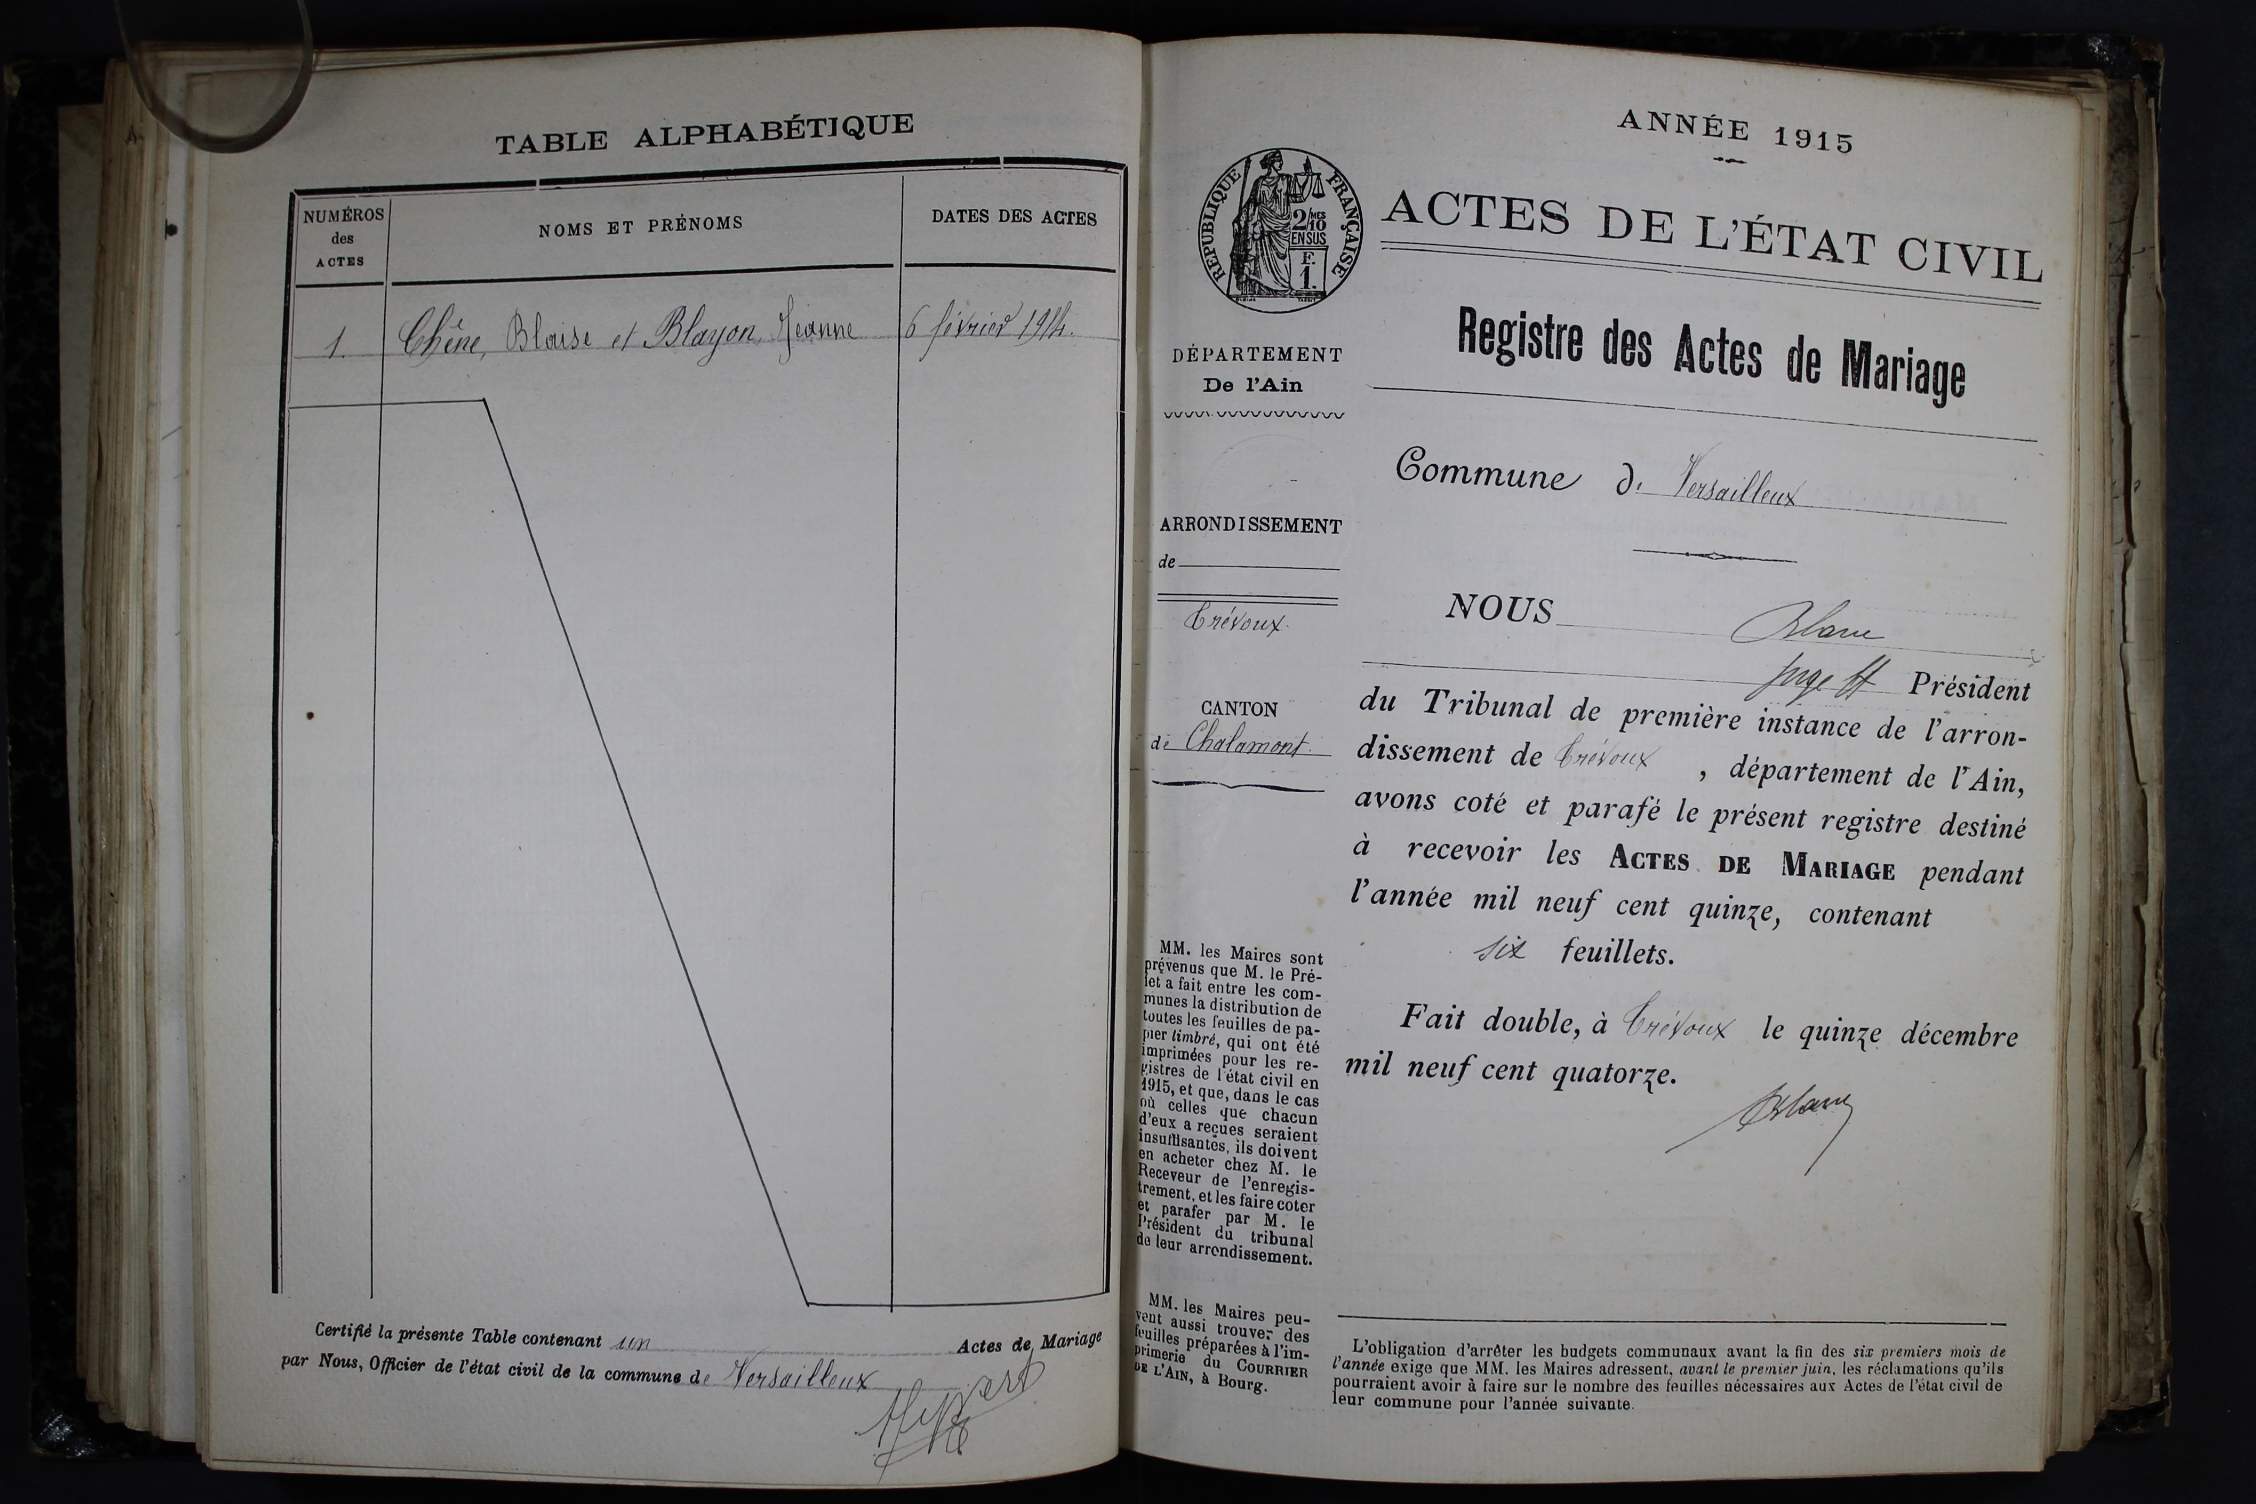 TABLE ALPHABÉTIQUE
NUMÉROS
des
ACTES
NOMS ET PRÉNOMS
DATES DES ACTES
1. Chêne, Blaise et Blayon, Jeanne 6 février 1914.
Certifié la présente Table contenant un Actes de Mariage
par Nous, Officier de l'état civil de la commune de Versailleux
ANNÉE 1915
RÉPUBLIQUE FRANÇAISE
2/10 MES
EN SUS
F.
1.
ACTES DE L'ÉTAT CIVIL
Registre des Actes de Mariage
DÉPARTEMENT
De l'Ain
Commune de Versailleux
ARRONDISSEMENT
de
Trévoux
CANTON
de Chalamont
NOUS Blanc
Juge ff Président
du Tribunal de première instance de l'arron-
dissement de Trévoux, département de l'Ain,
avons coté et parafé le présent registre destiné
à recevoir les ACTES DE MARIAGE pendant
l'année mil neuf cent quinze, contenant
six feuillets.
Fait double, à Trévoux le quinze décembre
mil neuf cent quatorze.
Blanc
MM. les Maires sont
prévenus que M. le Pré-
fet a fait entre les com-
munes la distribution de
toutes les feuilles de pa-
pier timbré, qui ont été
imprimées pour les re-
gistres de l'état civil en
1915, et que, dans le cas
où celles que chacun
d'eux a reçues seraient
insuffisantes, ils doivent
en acheter chez M. le
Receveur de l'enregis-
trement, et les faire coter
et parafer par M. le
Président du tribunal
de leur arrondissement.
MM. les Maires peu-
vent aussi trouver des
feuilles préparées à l'im-
primerie du COURRIER
DE L'AIN, à Bourg.
L'obligation d'arrêter les budgets communaux avant la fin des six premiers mois de
l'année exige que MM. les Maires adressent, avant le premier juin, les réclamations qu'ils
pourraient avoir à faire sur le nombre des feuilles nécessaires aux Actes de l'état civil de
leur commune pour l'année suivante.